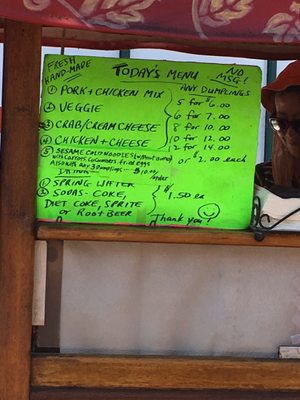 FRESH
HAND-MADE
TODAY'S MENU
NO
MSG!
ANY DUMPLINGS
① PORK + CHICKEN MIX
② VEGGIE
③ CRAB/CREAM CHEESE
④ CHICKEN + CHEESE
5 FOR $6.00
6 FOR 7.00
8 FOR 10.00
10 FOR 12.00
12 FOR 14.00
or $2.00 each
⑤ SESAME COLD NOODLES
with Carrots, Cucumbers, fried eggs
Also with Any 3 Dumplings -- $10.00/
order
DRINK
① SPRING WATER
② SODAS - COKE,
DIET COKE, SPRITE
or Root BEER
$1.50 ea
Thank you!